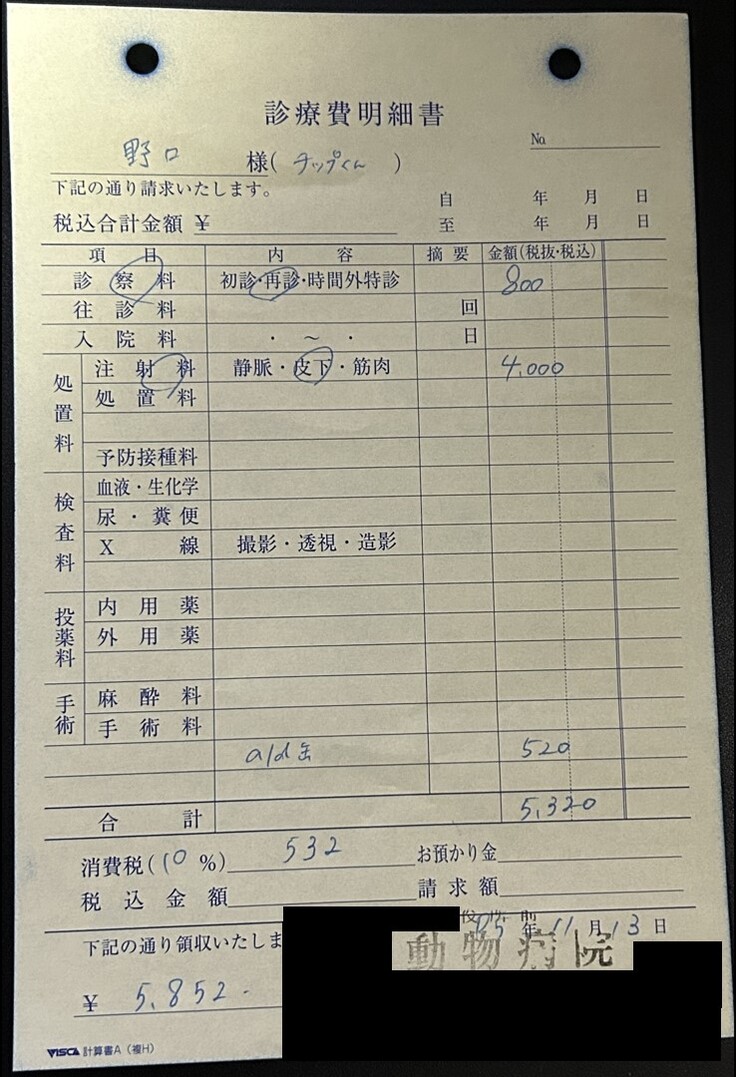 診療費明細書
No
野口 様(チップくん)
下記の通り請求いたします。
自 年 月 日
税込合計金額 ¥
至 年 月 日
項目 内容 摘要 金額(税抜・税込)
診察料 初診・再診・時間外特診 800
往診料 回
入院料 ・ ~ ・ 日
処置料
注射料 静脈・皮下・筋肉 4,000
処置料
予防接種料
検査料
血液・生化学
尿・糞便
X線 撮影・透視・造影
投薬料
内用薬
外用薬
手術
麻酔料
手術料
a/d缶 520
合計 5,320
消費税(10%) 532 お預かり金
税込金額 請求額
年 11月 13日
下記の通り領収いたしま
動物病院
¥ 5,852-
VISCA 計算書A(複H)